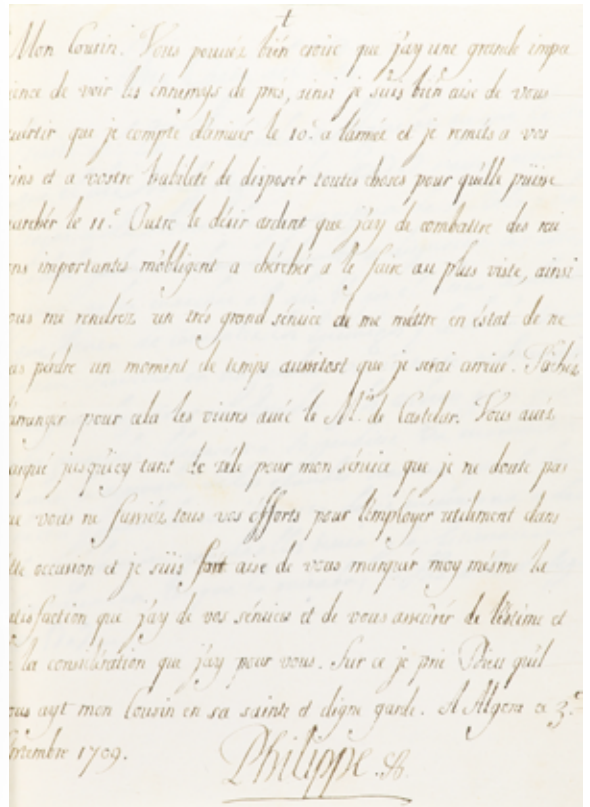 Mon Cousin. Vous pouvez bien croire que j'ay une grande impa
ience de voir les énnemys de prés, ainsi je suis bién aise de vous
uértir que je compte d'arriver le 10.e a l'armée et je remets a vos
ins et a vostre habileté de disposér toutes choses pour qu'élle puisse
archér le 11.e Outre le désir ardent que j'ay de combattre des rai
ns importantes m'obligent a chérchér a le faire au plus viste, ainsi
ous me rendréz un trés grand sérvice de me méttre en éstat de ne
as pérdre un moment de temps aussitost que je serai arrivé. Tachéz
'arrangér pour cela les vivres avéc le M.is de Castelar. Vous avéz
arqué jusqu'icy tant de zéle pour mon sérvice que je ne doute pas
ue vous ne fassiéz tous vos éfforts pour l'émployér utilement dans
étte occasion et je suis fort aise de vous marquér moy mésme la
atisfaction que j'ay de vos sérvices et de vous asseürér de l'éstime et
e la consideration que j'ay pour vous. Sur ce je prie Dieu qu'il
ous ayt mon Cousin en sa sainte et digne garde. A Algora ce 3.e
ptembre 1709.
Philippe